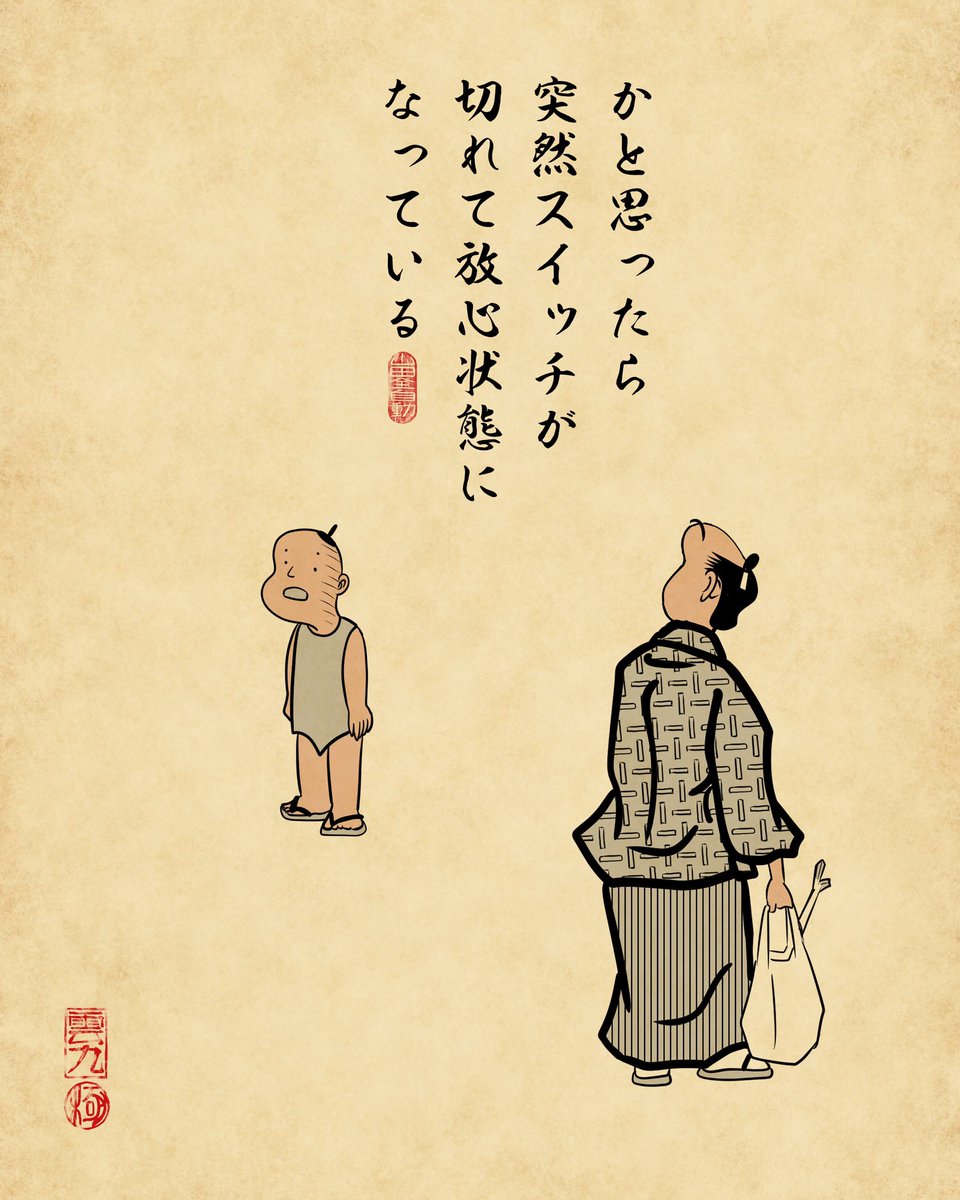 かと思ったら
突然スイッチが
切れて放心状態に
なっている